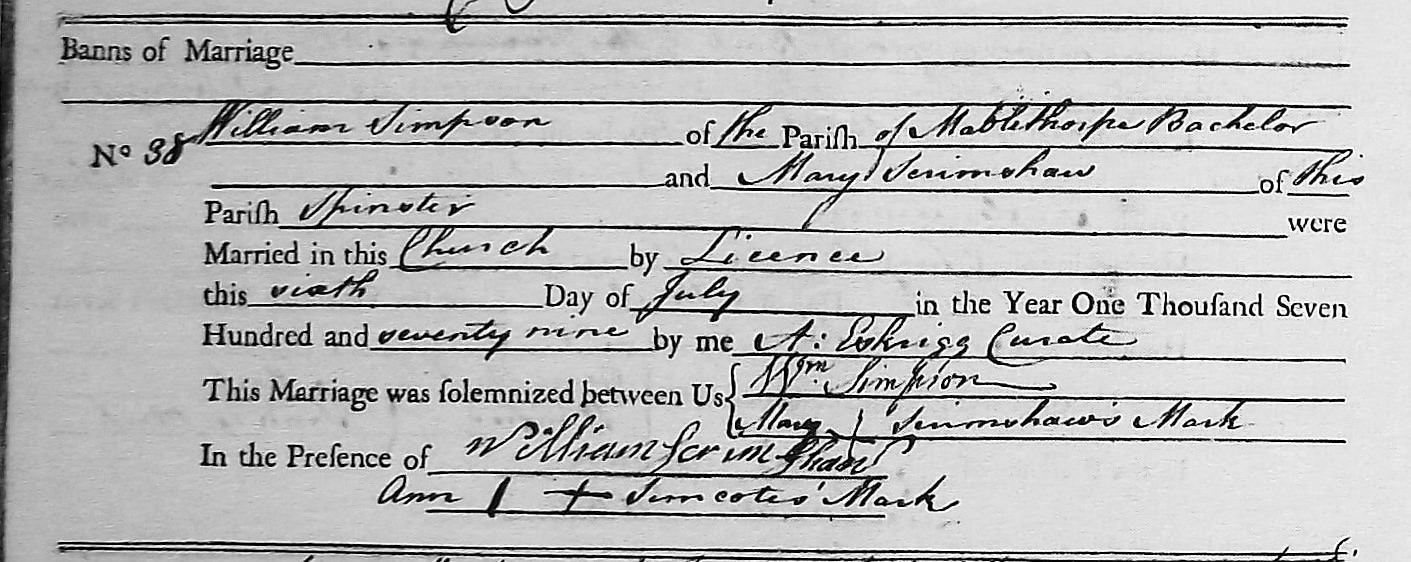 Banns of Marriage
William Simpson of the Pariſh of Mablethorpe Bachelor
No 38
and Mary Scrimshaw of this
Pariſh Spinster were
Married in this Church by Licence
this sixth Day of July in the Year One Thouſand Seven
Hundred and seventy nine by me A: Eskrigg Curate
This Marriage was ſolemnized between Us Wm. Simpson
Mary + Scrimshaw's Mark
In the Preſence of William Scrimshaw
Ann + Simcotes' Mark